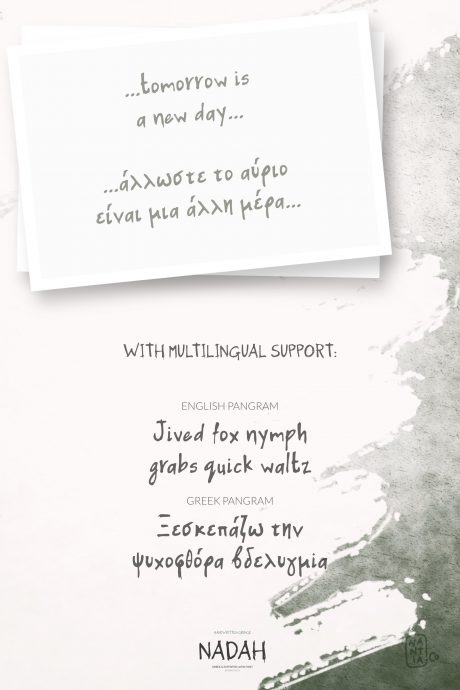 ...tomorrow is
a new day...
...άλλωστε το αύριο
είναι μια άλλη μέρα...
WITH MULTILINGUAL SUPPORT:
ENGLISH PANGRAM
Jived fox nymph
grabs quick waltz
GREEK PANGRAM
Ξεσκεπάζω την
ψυχοφθόρα βδελυγμία
NADAH